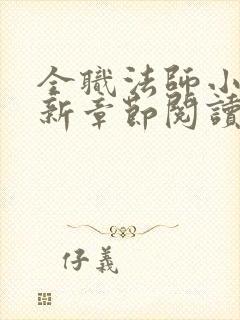 全職法師小
新章節閱讀
仔義